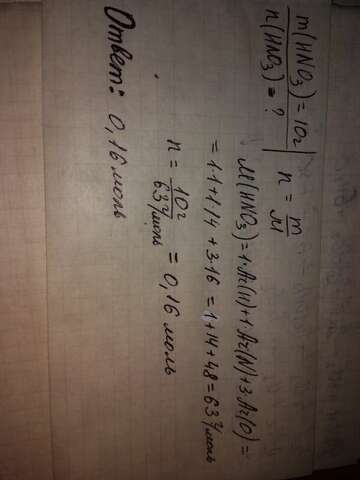 m(HNO₃) = 10г
n(HNO₃) = ?
n = m/M
M(HNO₃) = 1·Ar(H)+1·Ar(N)+3·Ar(O) =
= 1·1+1·14+3·16 = 1+14+48 = 63 г/моль
n = 10г / 63 г/моль = 0,16 моль
Ответ: 0,16 моль